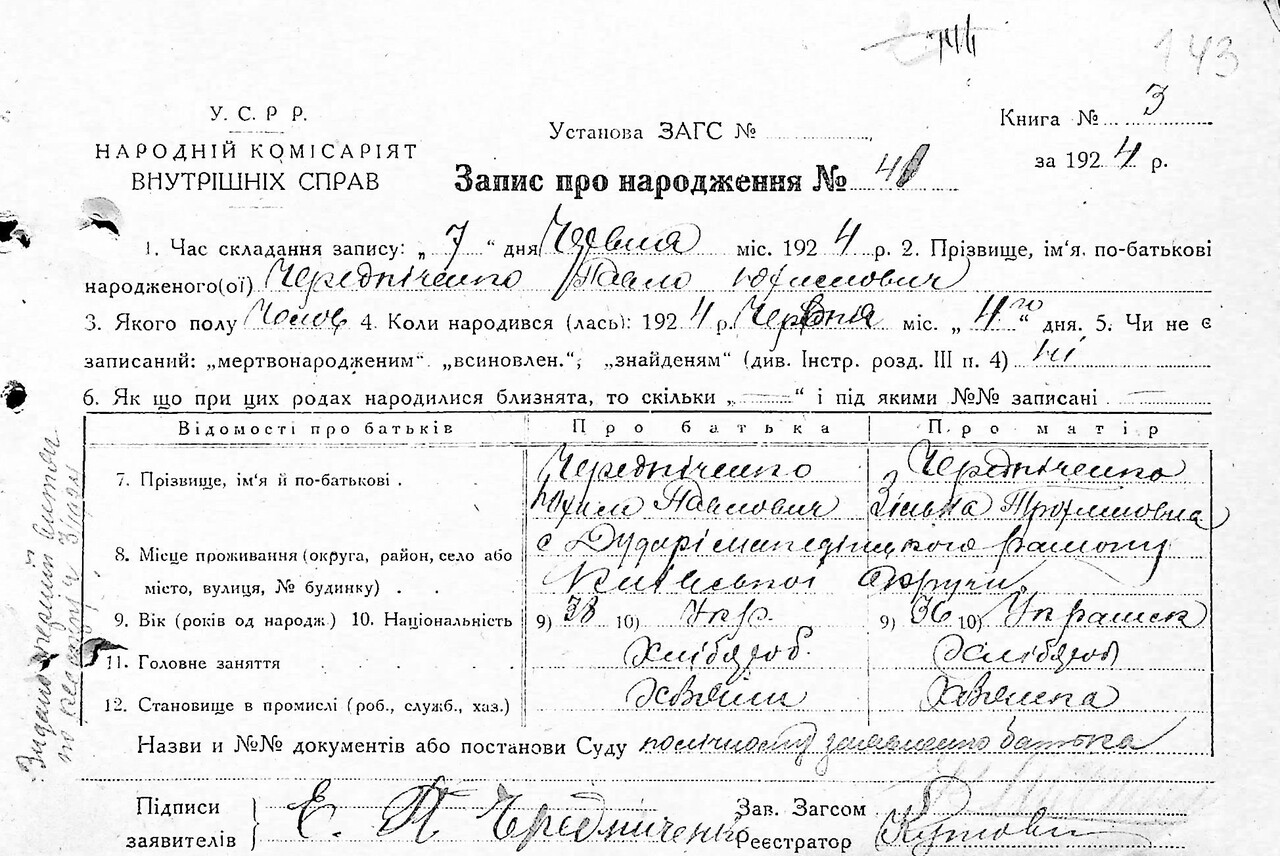 144
143
У. С. Р Р.
НАРОДНІЙ КОМІСАРІЯТ
ВНУТРІШНІХ СПРАВ
Установа ЗАГС №
Книга № 3
за 1924 р.
Запис про народження № 41
1. Час складання запису: „ 7 “ дня Червня міс. 1924 р. 2. Прізвище, ім'я. по-батькові
народженого(ої) Чередніченко Павло Юхимович
3. Якого полу Чолов 4. Коли народився (лась): 1924 р. Червня міс. „ 4го “ дня. 5. Чи не є
записаний: „мертвонародженим“. „всиновлен.“; „знайденям“ (див. Інстр. розд. III п. 4) ні
6. Як що при цих родах народилися близнята, то скільки „ “ і під якими №№ записані
Відомості про батьків Про батька Про матір
7. Прізвище, ім'я й по-батькові . Чередніченко Чередніченко
Юхим Павлович Зінька Трохимовна
8. Місце проживання (округа, район, село або с Дударі района
місто, вулиця, № будинку) . . Київської Округи
9. Вік (років од народж.) 10. Національність 9) 38 10) Укр. 9) 36 10) Украинск
11. Головне заняття . . . . Хлібороб. Хлібороб
12. Становище в промислі (роб., служб., хаз.) Хозяїн Хозяйка
Назви и №№ документів або постанови Суду батька
Підписи
заявителів Е. П. Чередниченко
Зав. Загсом
Реєстратор